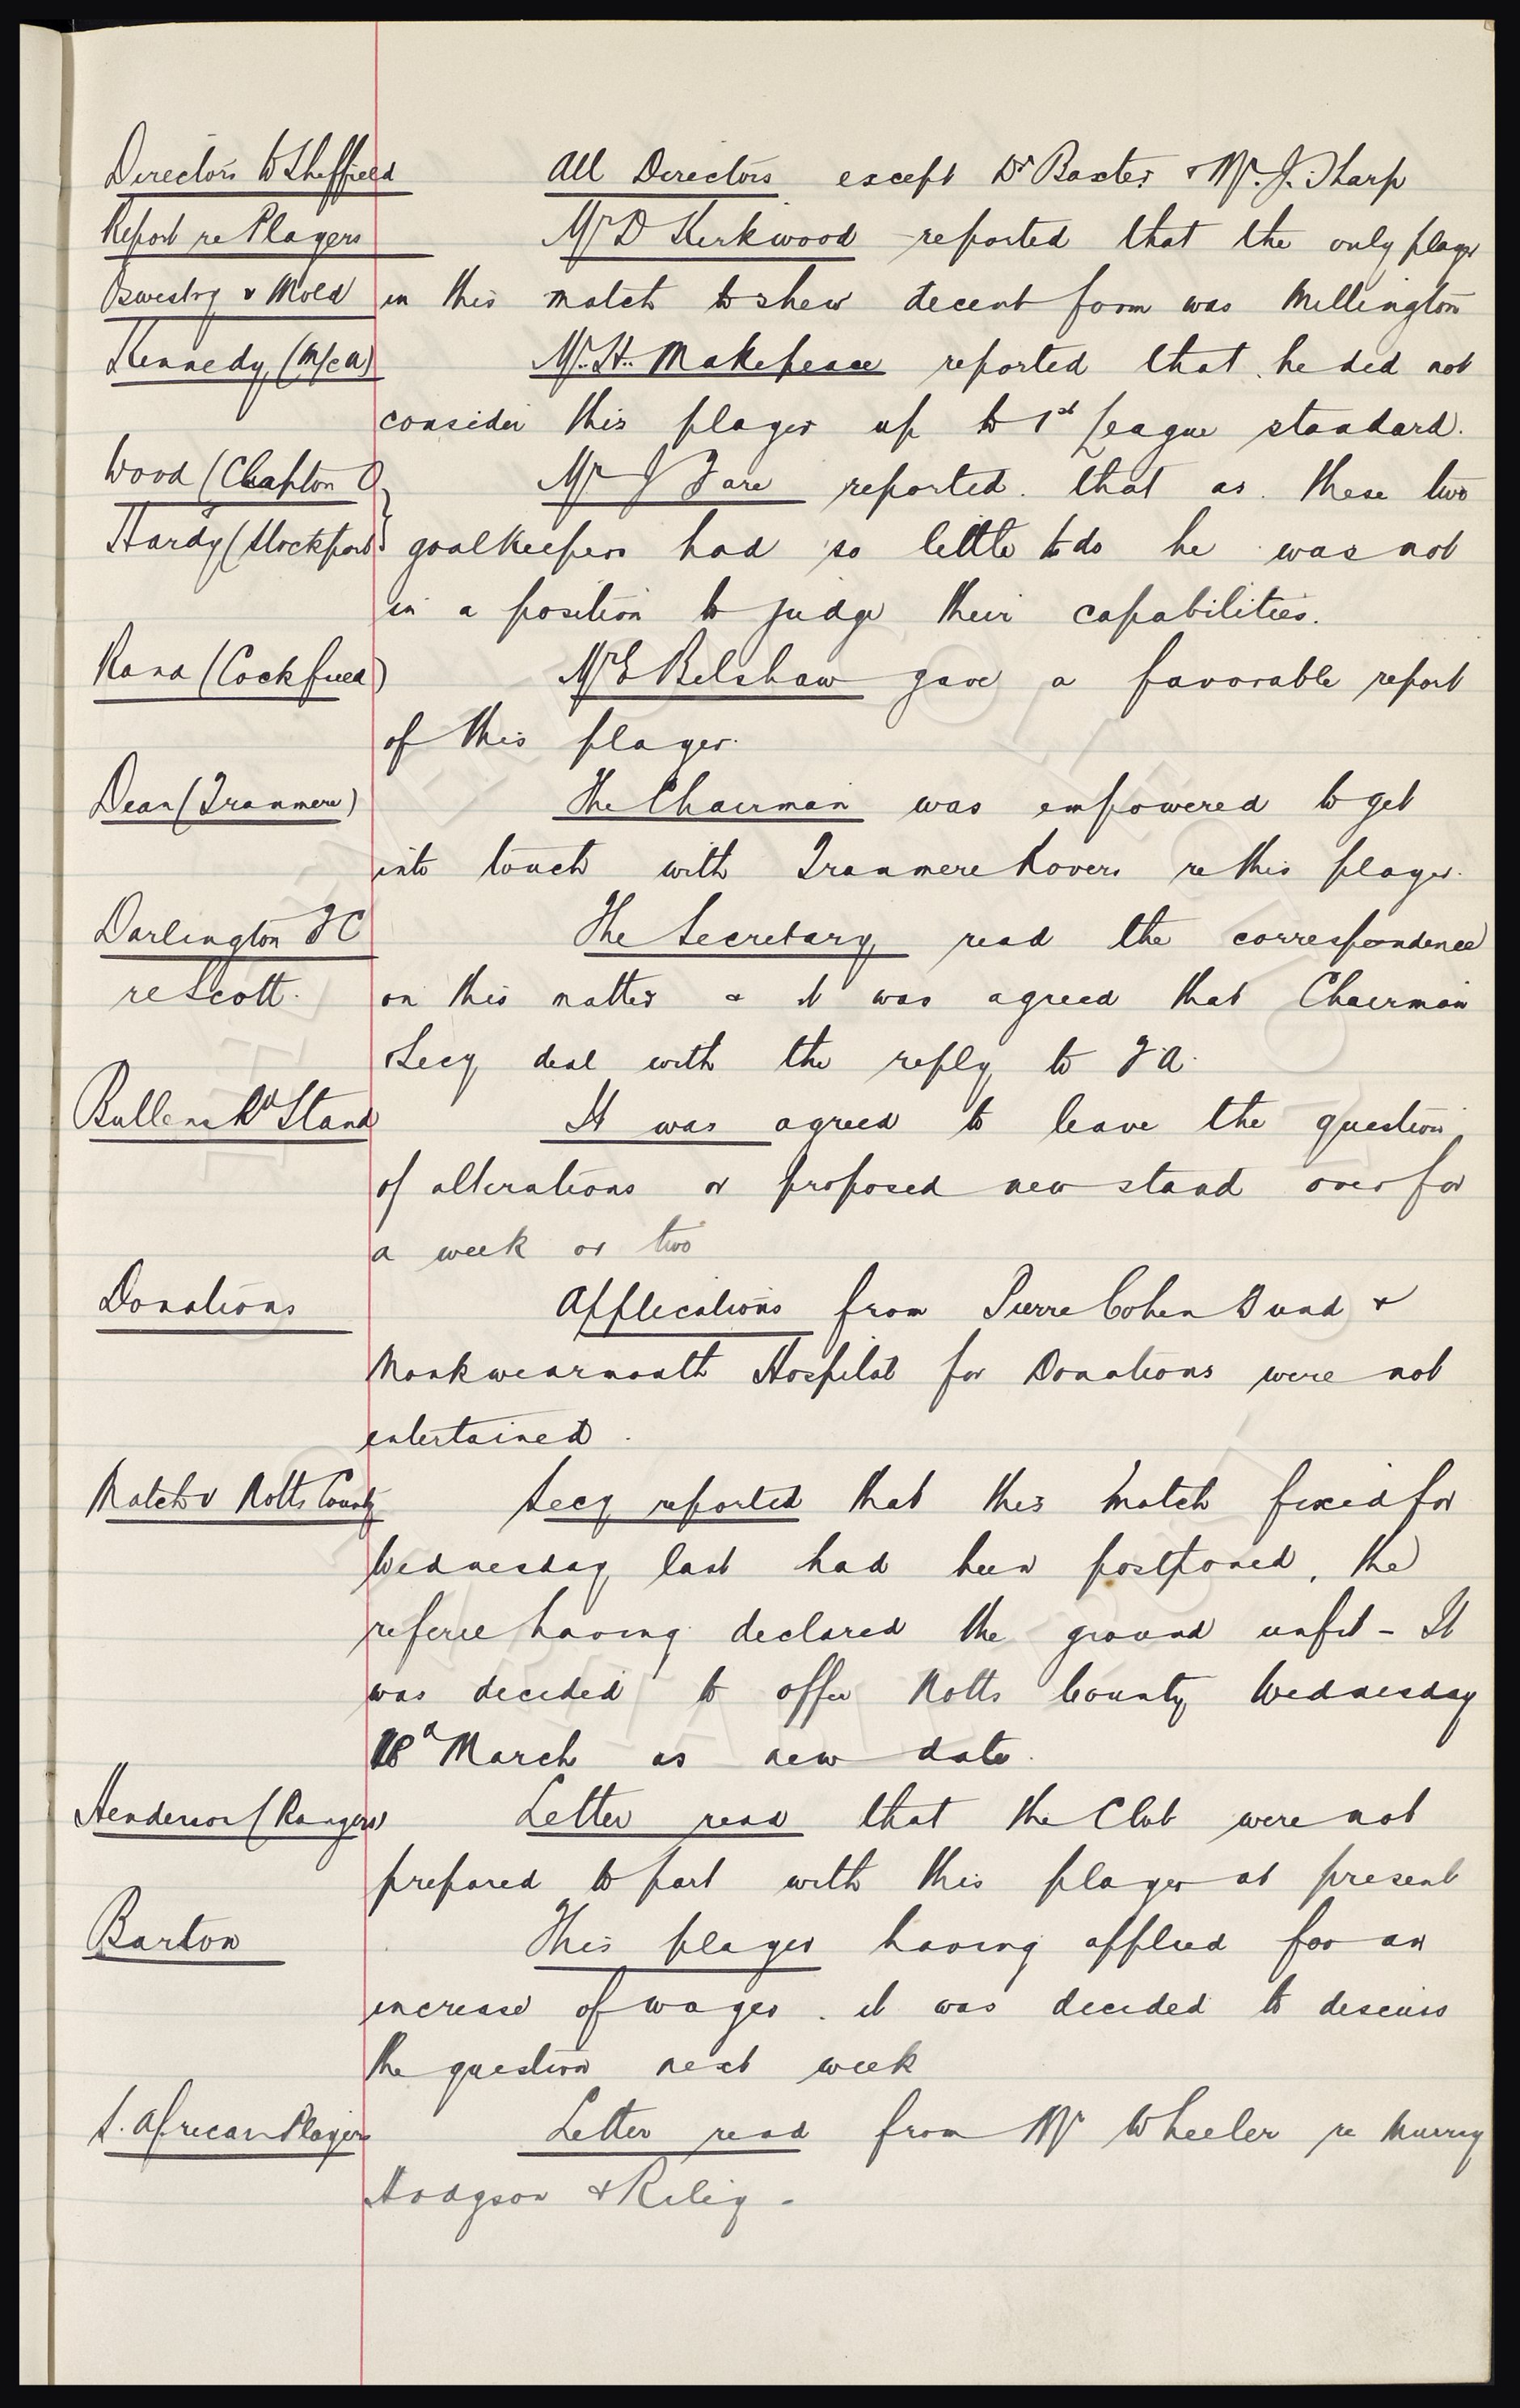 Directors to Sheffield All Directors except Dr Baxter & Mr. J. Sharp
Report re Players Mr D Kirkwood reported that the only player
Oswestry v Mold in this match to shew decent form was Millington
Kennedy (M/c A) Mr. H. Makepeace reported that he did not
consider this player up to 1st League standard.
Wood (Clapton O Mr J Fare reported. that as these two
Hardy (Stockport) goalkeepers had so little to do he was not
in a position to judge their capabilities.
(Cockfield) Mr E Belshaw gave a favorable report
of this player.
Dean (Tranmere) The Chairman was empowered to get
into touch with Tranmere Rovers re this player.
Darlington FC The Secretary read the correspondence
re Scott. on this matter & it was agreed that Chairman
& Secy deal with the reply to F.A.
Bullens Rd Stand It was agreed to leave the question
of alterations or proposed new stand over for
a week or two
Donations Applications from Pierre Cohen Fund &
Monkwearmouth Hospital for Donations were not
entertained.
Match v Notts County Secy reported that this match fixed for
Wednesday last had been postponed, the
referee having declared the ground unfit - It
was decided to offer Notts County Wednesday
18th March as new date.
Henderson (Rangers) Letter read that the Club were not
prepared to part with this player at present
Barton This player having applied for an
increase of wages. it was decided to discuss
the question next week
S. African Players Letter read from Mr Wheeler re Murray
Hodgson & Riley -